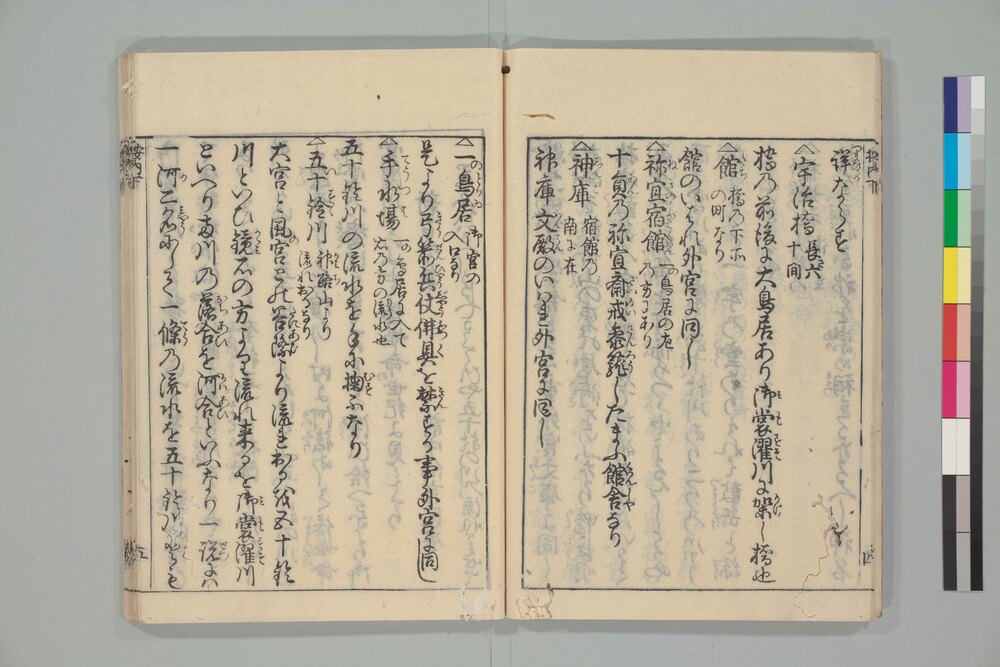 詳ならす
宇治橋 長六十間
橋乃前後に大鳥居あり御裳濯川に架し橋也
館 橋乃下ニ の町なり
館のいはれ外宮に同し
祢宜宿館 一鳥居の左乃方にあり
十員乃祢宜斎戒参籠したまふ館舎なり
神庫 宿館乃 南に在
神庫文殿のいはれ外宮に同し
一鳥居 御宮の入口なり
是より弓箭兵仗佛具を禁する事外宮に同し
手水場 一の鳥居に入て右乃方の流水也
五十鈴川の流水を手に掬ふなり
五十鈴川 神路山より流れ出るなり
大宮と風宮との谷際より流れ出るを五十鈴
川といひ鏡石の方より流れ来るを御裳濯川
といへり両川の落合を河合といふなり一説には
一河二名にして一條乃流水を五十鈴川とも